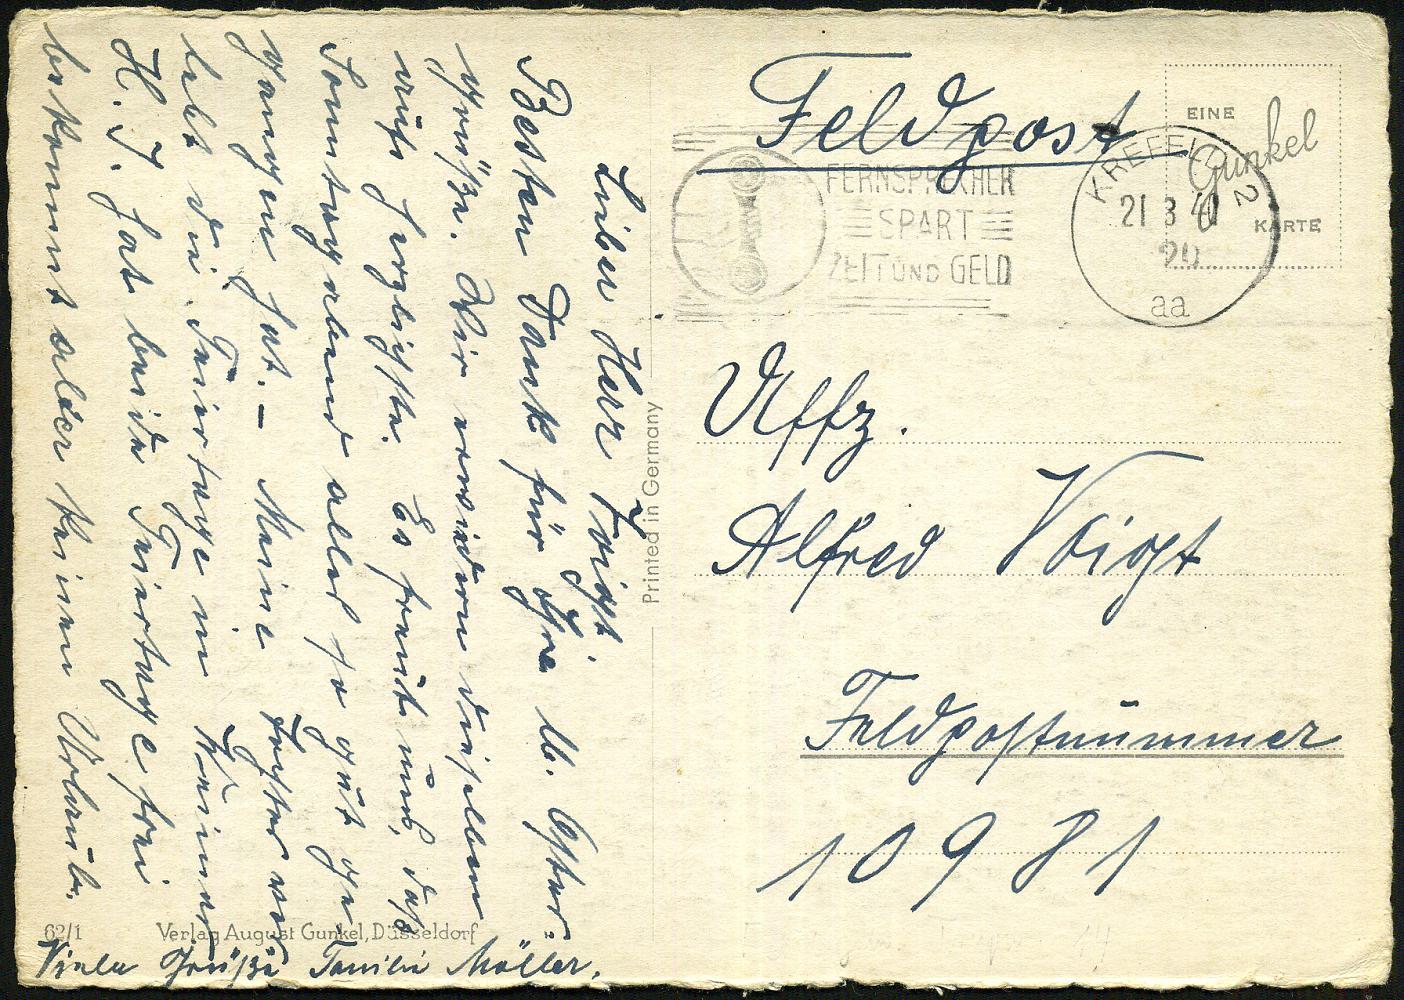 Lieber Herr Voigt.
Besten Dank für Ihre lb. Oster-
grüße. Wir erwidern dieselben
aufs herzlichste. Es freut uns, daß
Sonntagabend alles so gut ge-
gangen hat. – Meine Tochter ver-
lebt die Feiertage in
H. J. hat beide Feiertage frei
bekommt aber keinen Urlaub.
Viele Grüße Familie Möller.
62/1 Verlag August Gunkel, Düsseldorf
Printed in Germany
Feldpost
EINE
Gunkel
KARTE
FERNSPRECHER
SPART
ZEIT UND GELD
KREFELD 2
21 3 40
20
aa
Uffz.
Alfred Voigt
Feldpostnummer
10981